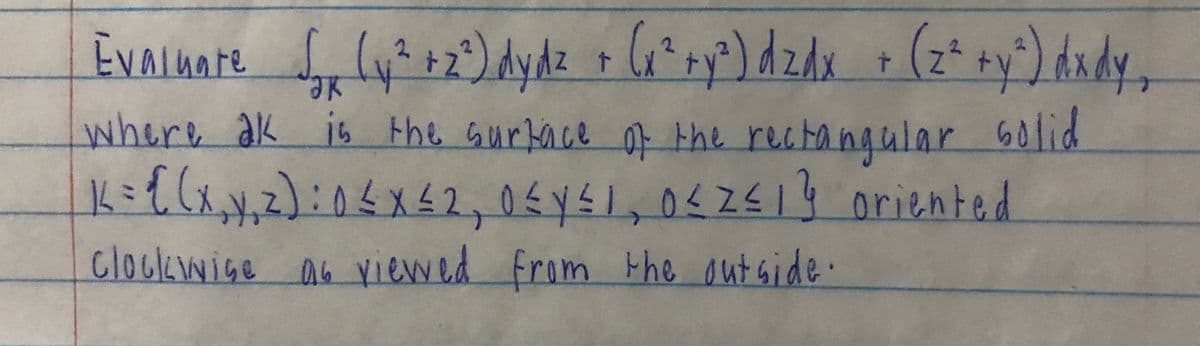 Evaluate ∫∂K (y² + z²) dydz + (x² + y²) dzdx + (z² + y²) dxdy,
where ∂K is the surface of the rectangular solid
K = {(x,y,z): 0 ≤ x ≤ 2, 0 ≤ y ≤ 1, 0 ≤ z ≤ 1} oriented
clockwise as viewed from the outside.